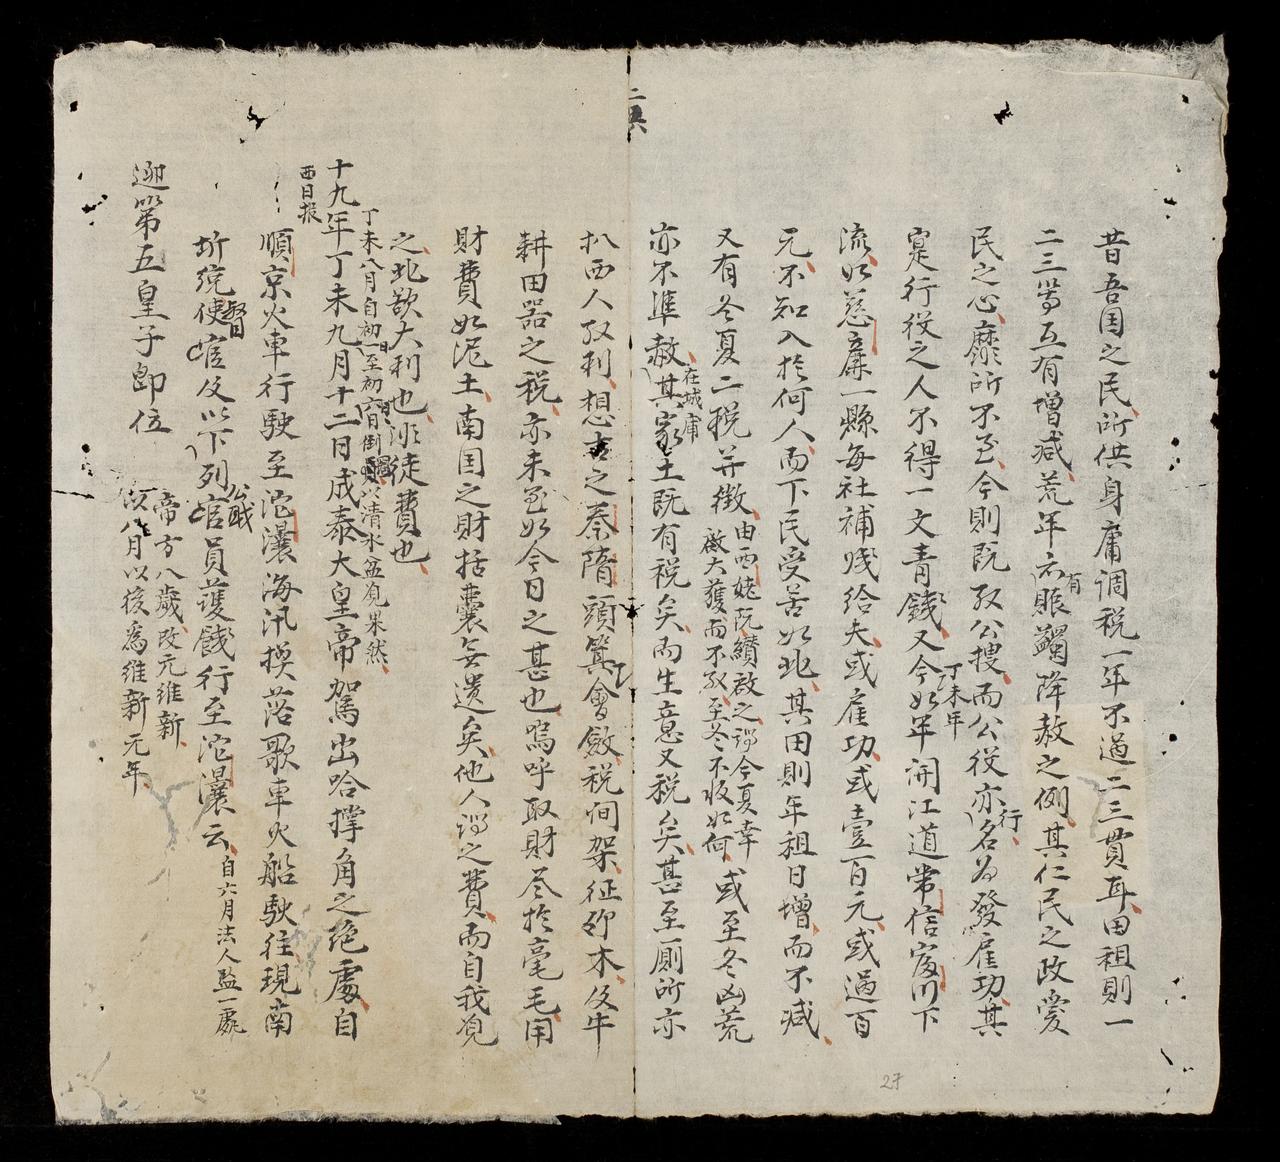 昔吾国之民所供身庸調税一年不過二三貫耳田祖則一
二三等互有增减荒年亦有賑蠲降赦之例其仁民之政愛
民之心靡所不至今則既取公搜而公役亦行名為發雇功其
寔行役之人不得一文青錢又今如年丁未年開江道常信下
流如慈廉一縣每社補賤給夫或雇功或壹百元或過百
元不知入於何人而下民受苦如此其田則年祖日增而不减
又有冬夏二税并徵由西姥阮纘啟之謂今夏幸
大獲而不取至冬不收如何或至冬凶荒
亦不準赦在城庸其家土既有税矣而生意又税矣甚至厠所亦
扒西人取利想古之秦隋頭箕會斂税間架征竹木及牛
耕田器之税亦未至如今日之甚也嗚呼取財尽於毫毛用
財費如泥土南国之財括囊無遺矣他人謂之費而自我見
之此欲大利也非徒費也
丁未八月自初一日至初六日倒以清水盆見果然
十九年丁未九月十二日成泰大皇帝駕出哈撑角之絶處自
西日报
順京火車行駛至沱灢海汛換落歌車火船駛往現南
圻統使督官及以下列公戝官員護餞行至沱灢云自六月法人监一處
迎第五皇子即位
帝方八歲改元維新
以八月以後為維新元年
二其
27